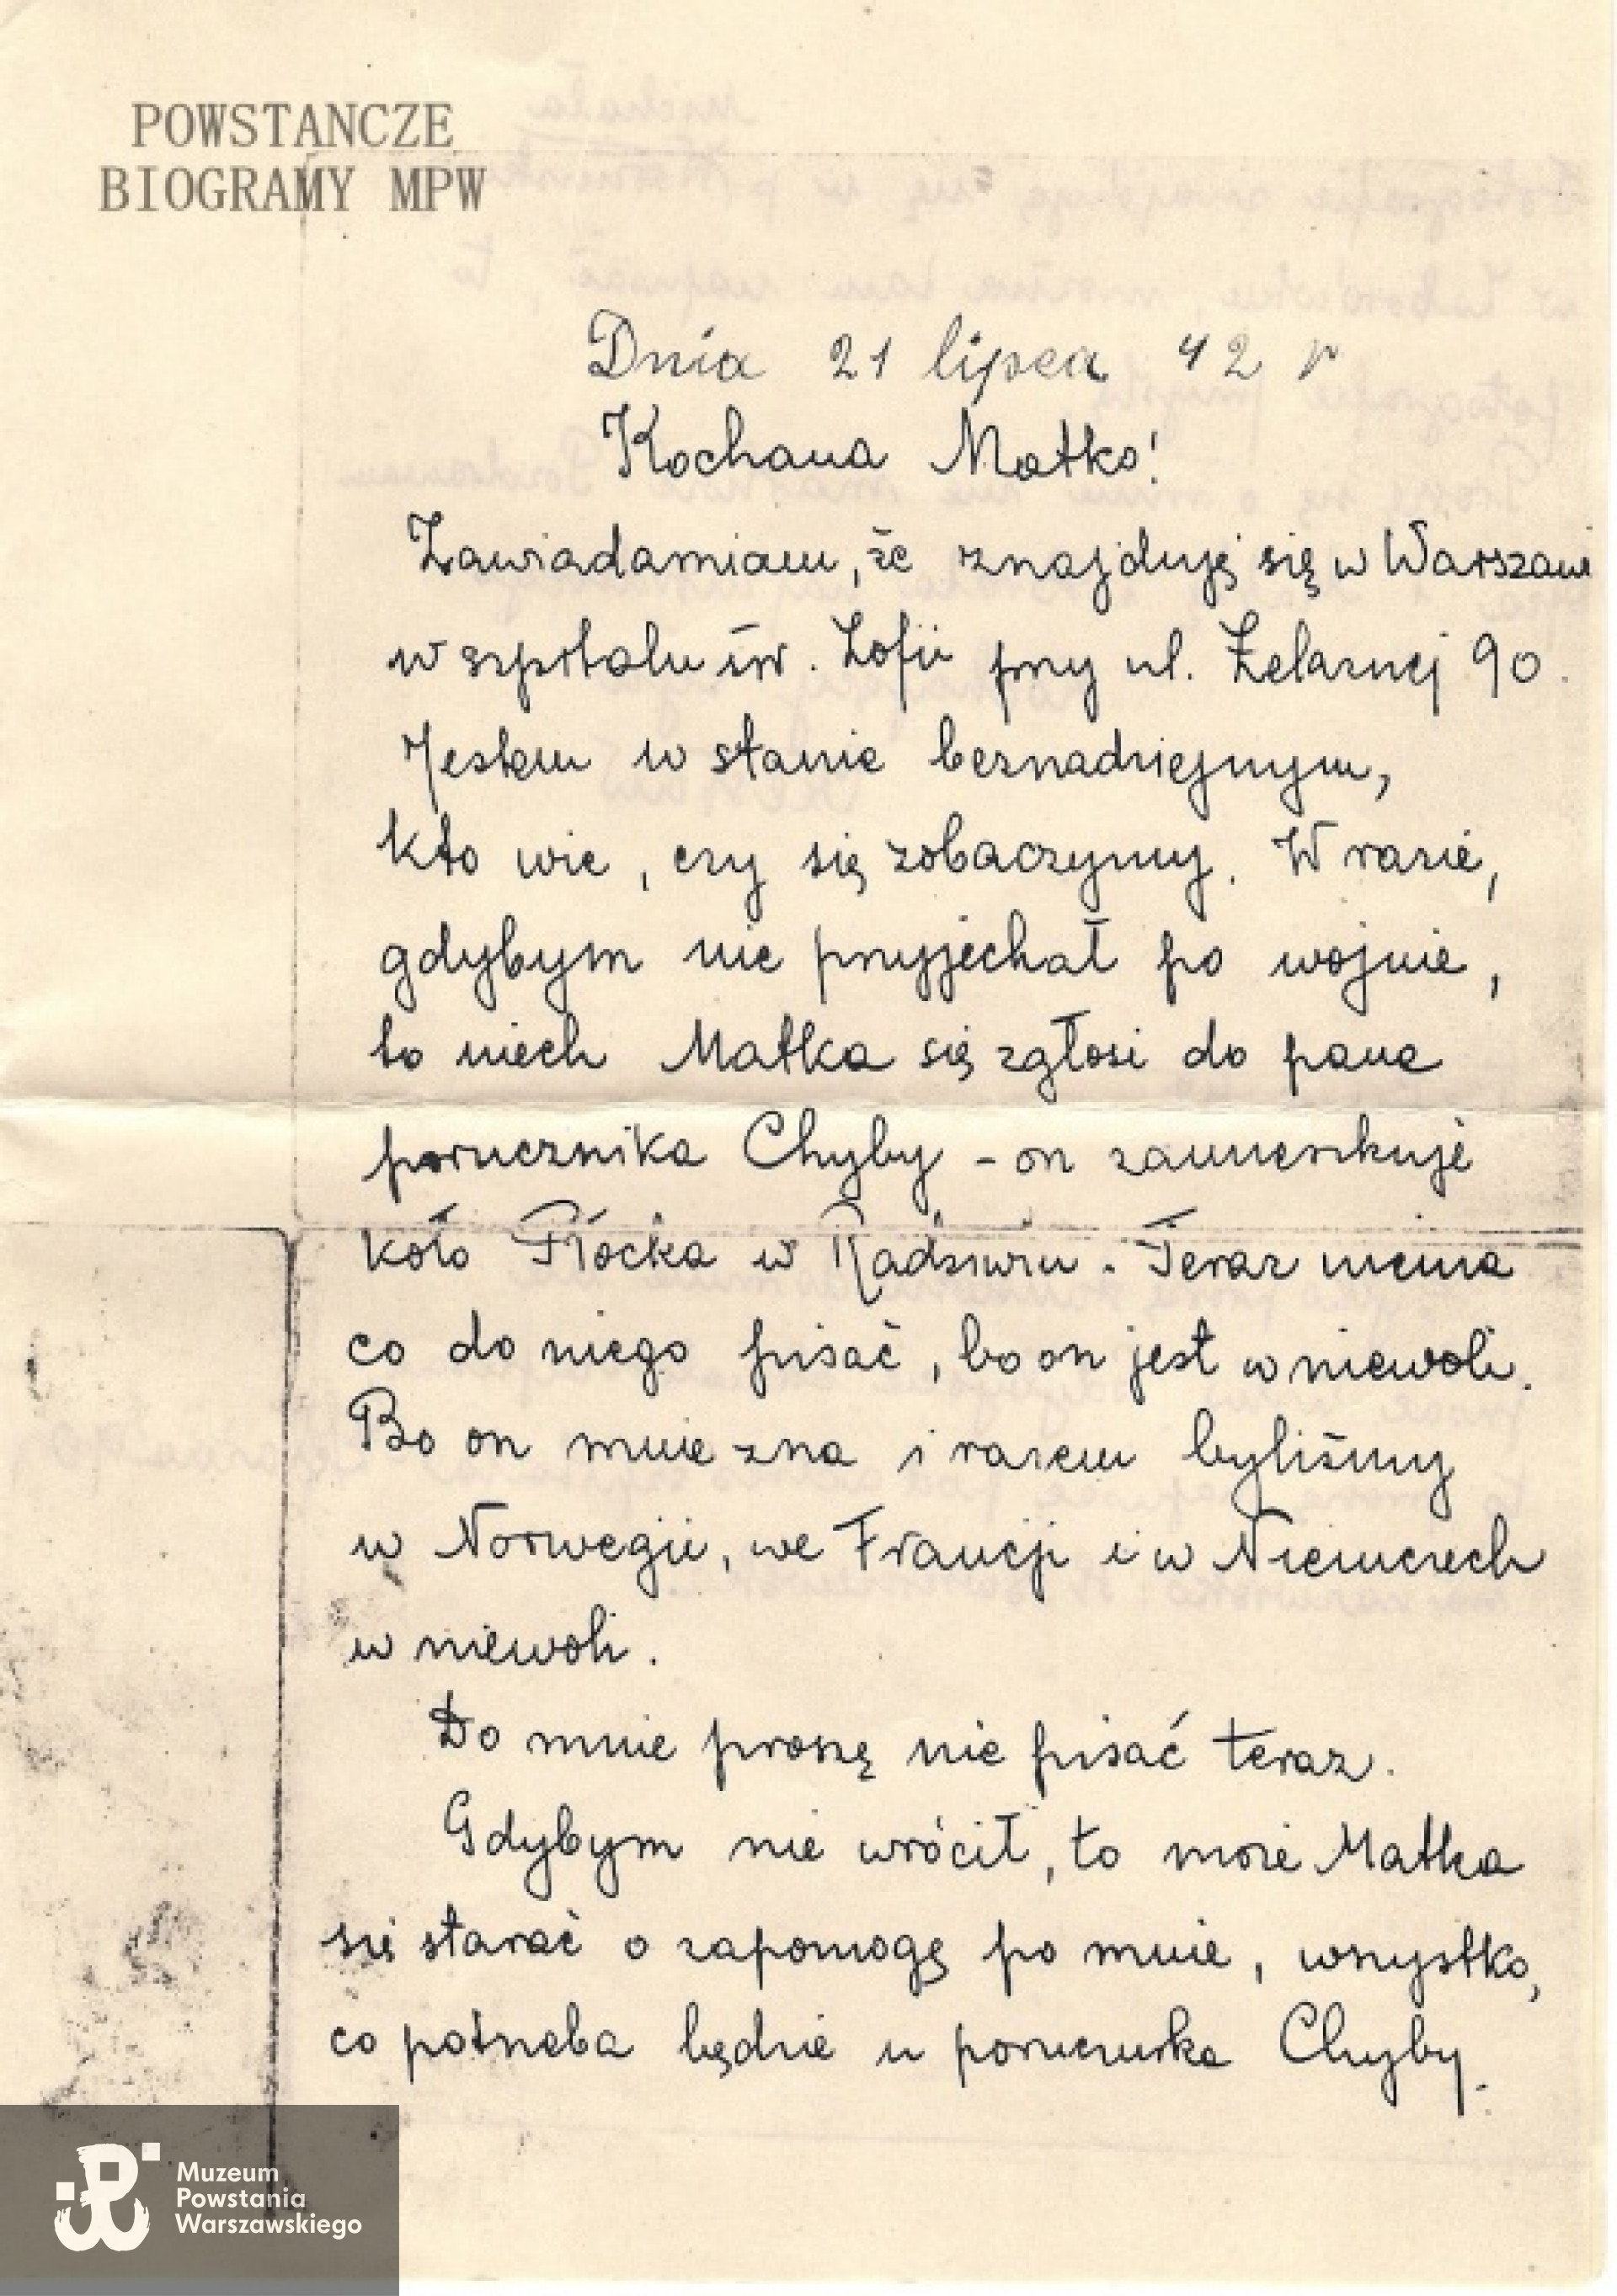 POWSTANCZE
BIOGRAMY MPW
Dnia 21 lipca 42 r
Kochana Matko!
Zawiadamiam, że znajduję się w Warszawie
w szpitalu św. Zofii przy ul. Żelaznej 90.
Jestem w stanie beznadziejnym,
kto wie, czy się zobaczymy. W razie,
gdybym nie przyjechał po wojnie,
to niech Matka się zgłosi do pana
porucznika Chyby - on zamieszkuje
koło Płocka w Radziwiu. Teraz niema
co do niego pisać, bo on jest w niewoli.
Bo on mnie zna i razem byliśmy
w Norwegii, we Francji i w Niemczech
w niewoli.
Do mnie proszę nie pisać teraz.
Gdybym nie wrócił, to może Matka
się starać o zapomogę po mnie, wszystko,
co potrzeba będzie u porucznika Chyby.
Muzeum
Powstania
Warszawskiego